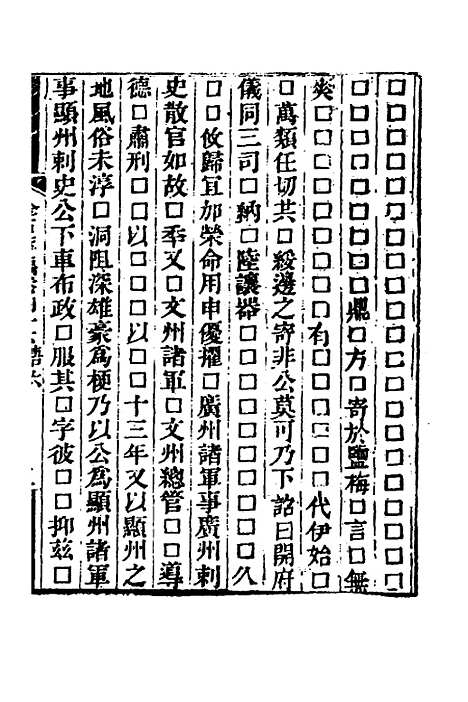 □□□□□□□□□□□□□□□□□□□□□
□□□□□□□□□鼎□方□寄於鹽梅□言□無
炎□□□□□□□□□有□□□□□□代伊始□
□萬類任切其□綏邊之寄非公莫可乃下詔曰開府
儀同三司□納□陸讓器□□□□□□□□□□久
□□攸歸宜加榮命用申優擢□廣州諸軍事廣州刺
史散官如故□秊又□文州諸軍□文州總管□□導
德□肅刑□□以□□□以□□十三年又以顯州之
地風俗未淳□洞阻深雄豪爲梗乃以公爲顯州諸軍
事顯州刺史公下車布政□服其□字彼□□抑兹□